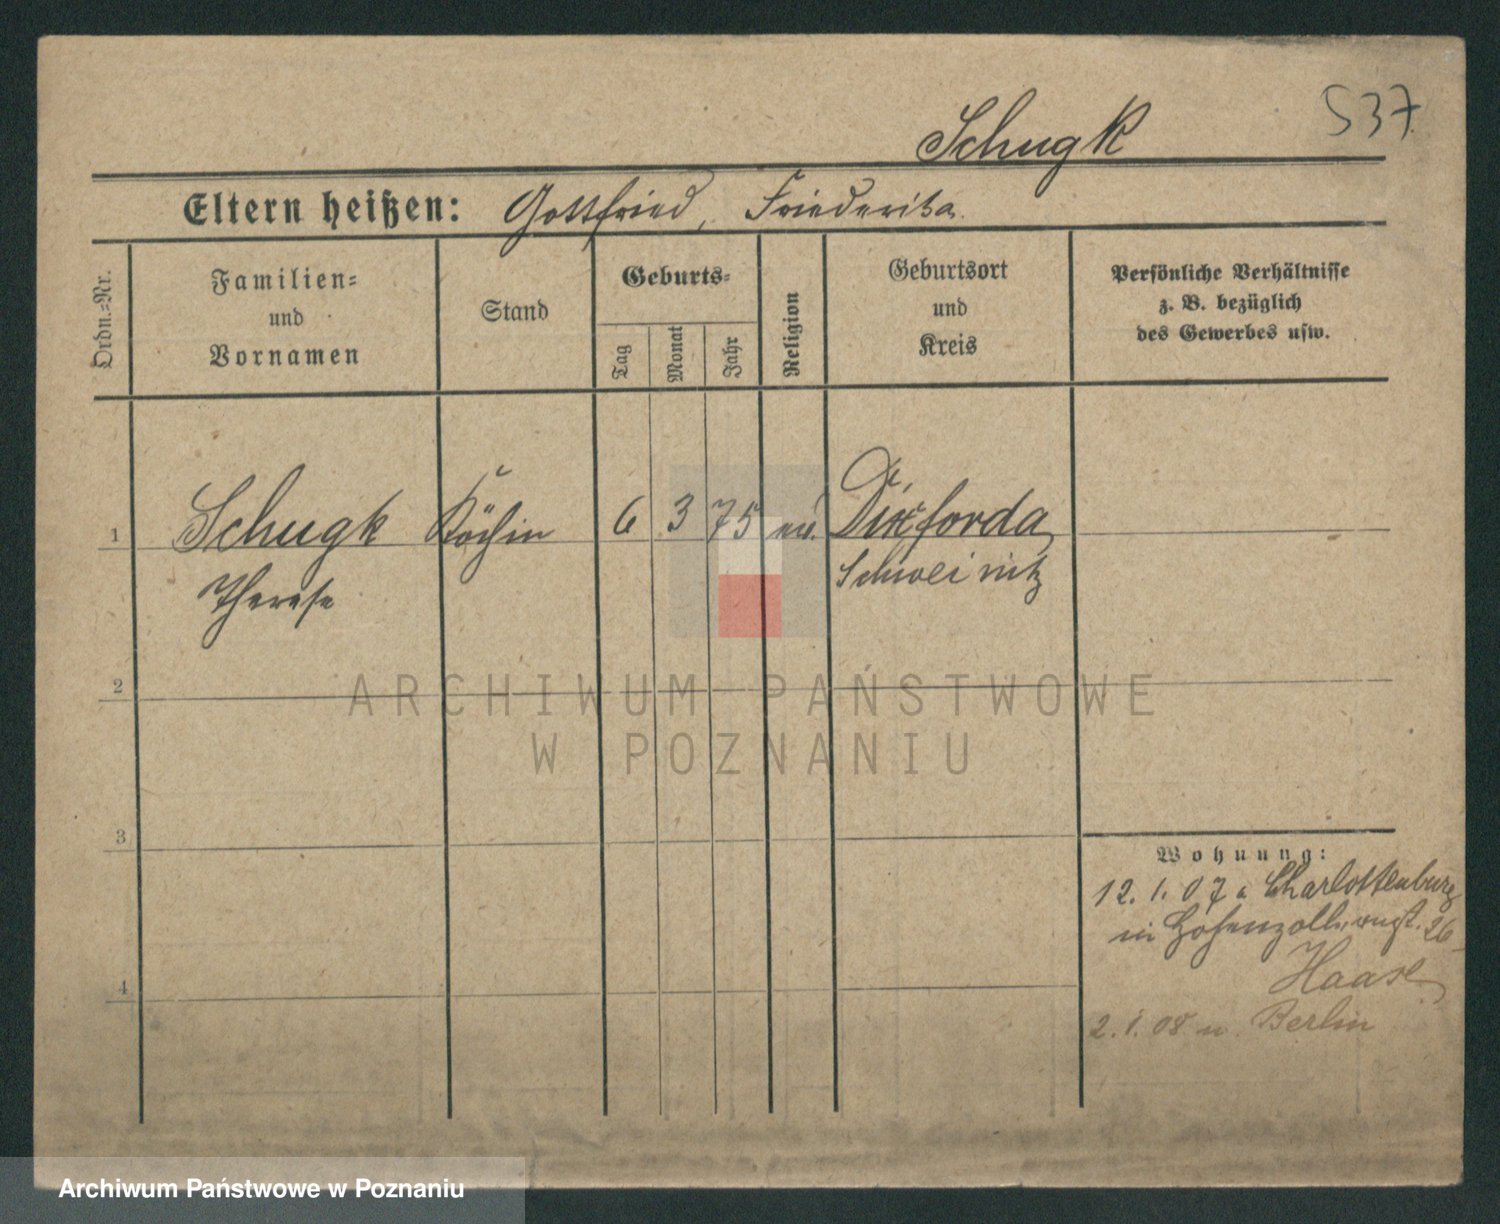 Schugk
537
Eltern heißen: Gottfried, Friederika.
Ordn.-Nr.
Familien-
und
Vornamen
Stand
Geburts-
Tag
Monat
Jahr
Religion
Geburtsort
und
Kreis
Persönliche Verhältnisse
z. B. bezüglich
des Gewerbes usw.
1 Schugk Köchin 6 3 75 ev. Dixforda
Therese Schweinitz
2
ARCHIWUM PAŃSTWOWE
W POZNANIU
3
Wohnung:
12. 1. 07 a Charlottenburg
in Hohenzollernst. 26
4
Haase
2. 1. 08 n. Berlin
Archiwum Państwowe w Poznaniu